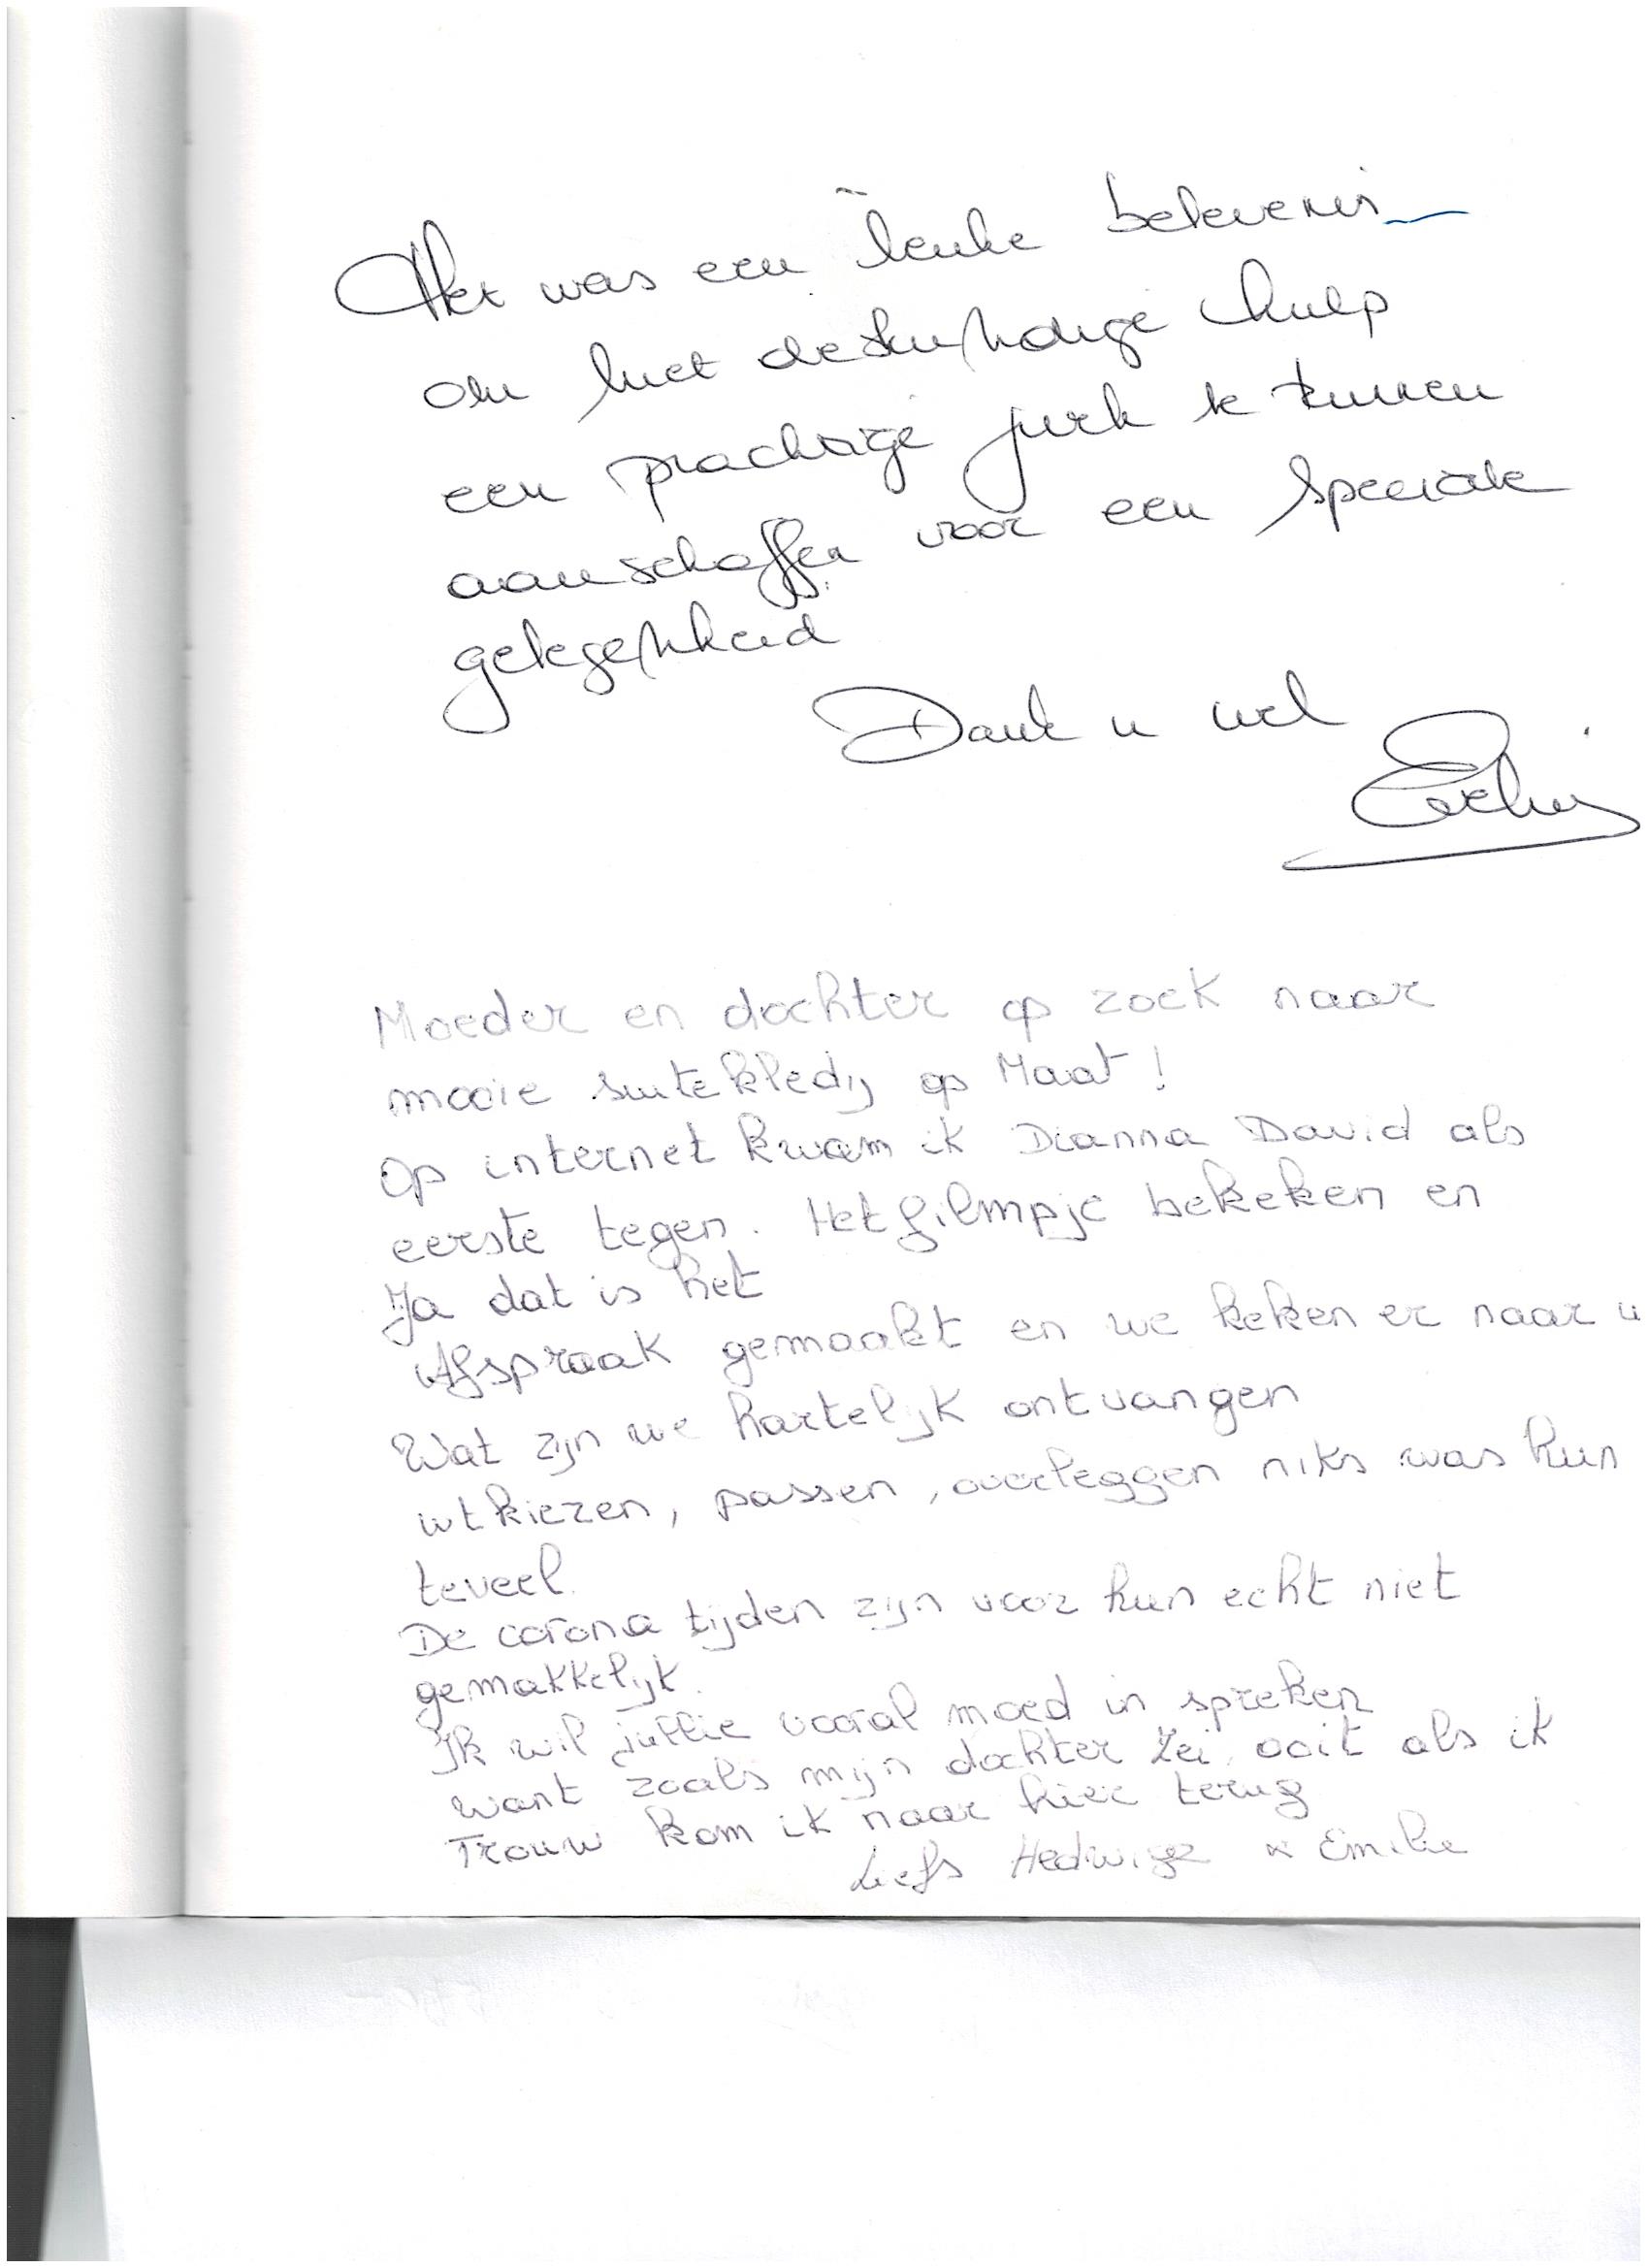 Het was een leuke belevenis
om met deskundige hulp
een prachtige jurk te kunnen
aanschaffen voor een speciale
gelegenheid
Dank u wel
Moeder en dochter op zoek naar
mooie suitekledij op Maat!
Op internet kwam ik Dianna David als
eerste tegen. Het filmpje bekeken en
Ja dat is het
Afspraak gemaakt en we keken er naar u
Wat zijn we hartelijk ontvangen
uitkiezen, passen, overleggen niks was hun
teveel.
De corona tijden zijn voor hun echt niet
gemakkelijk.
Ik wil jullie vooral moed in spreken
want zoals mijn dochter zei, ooit als ik
Trouw kom ik naar hier terug
Liefs Hedwige & Emilie